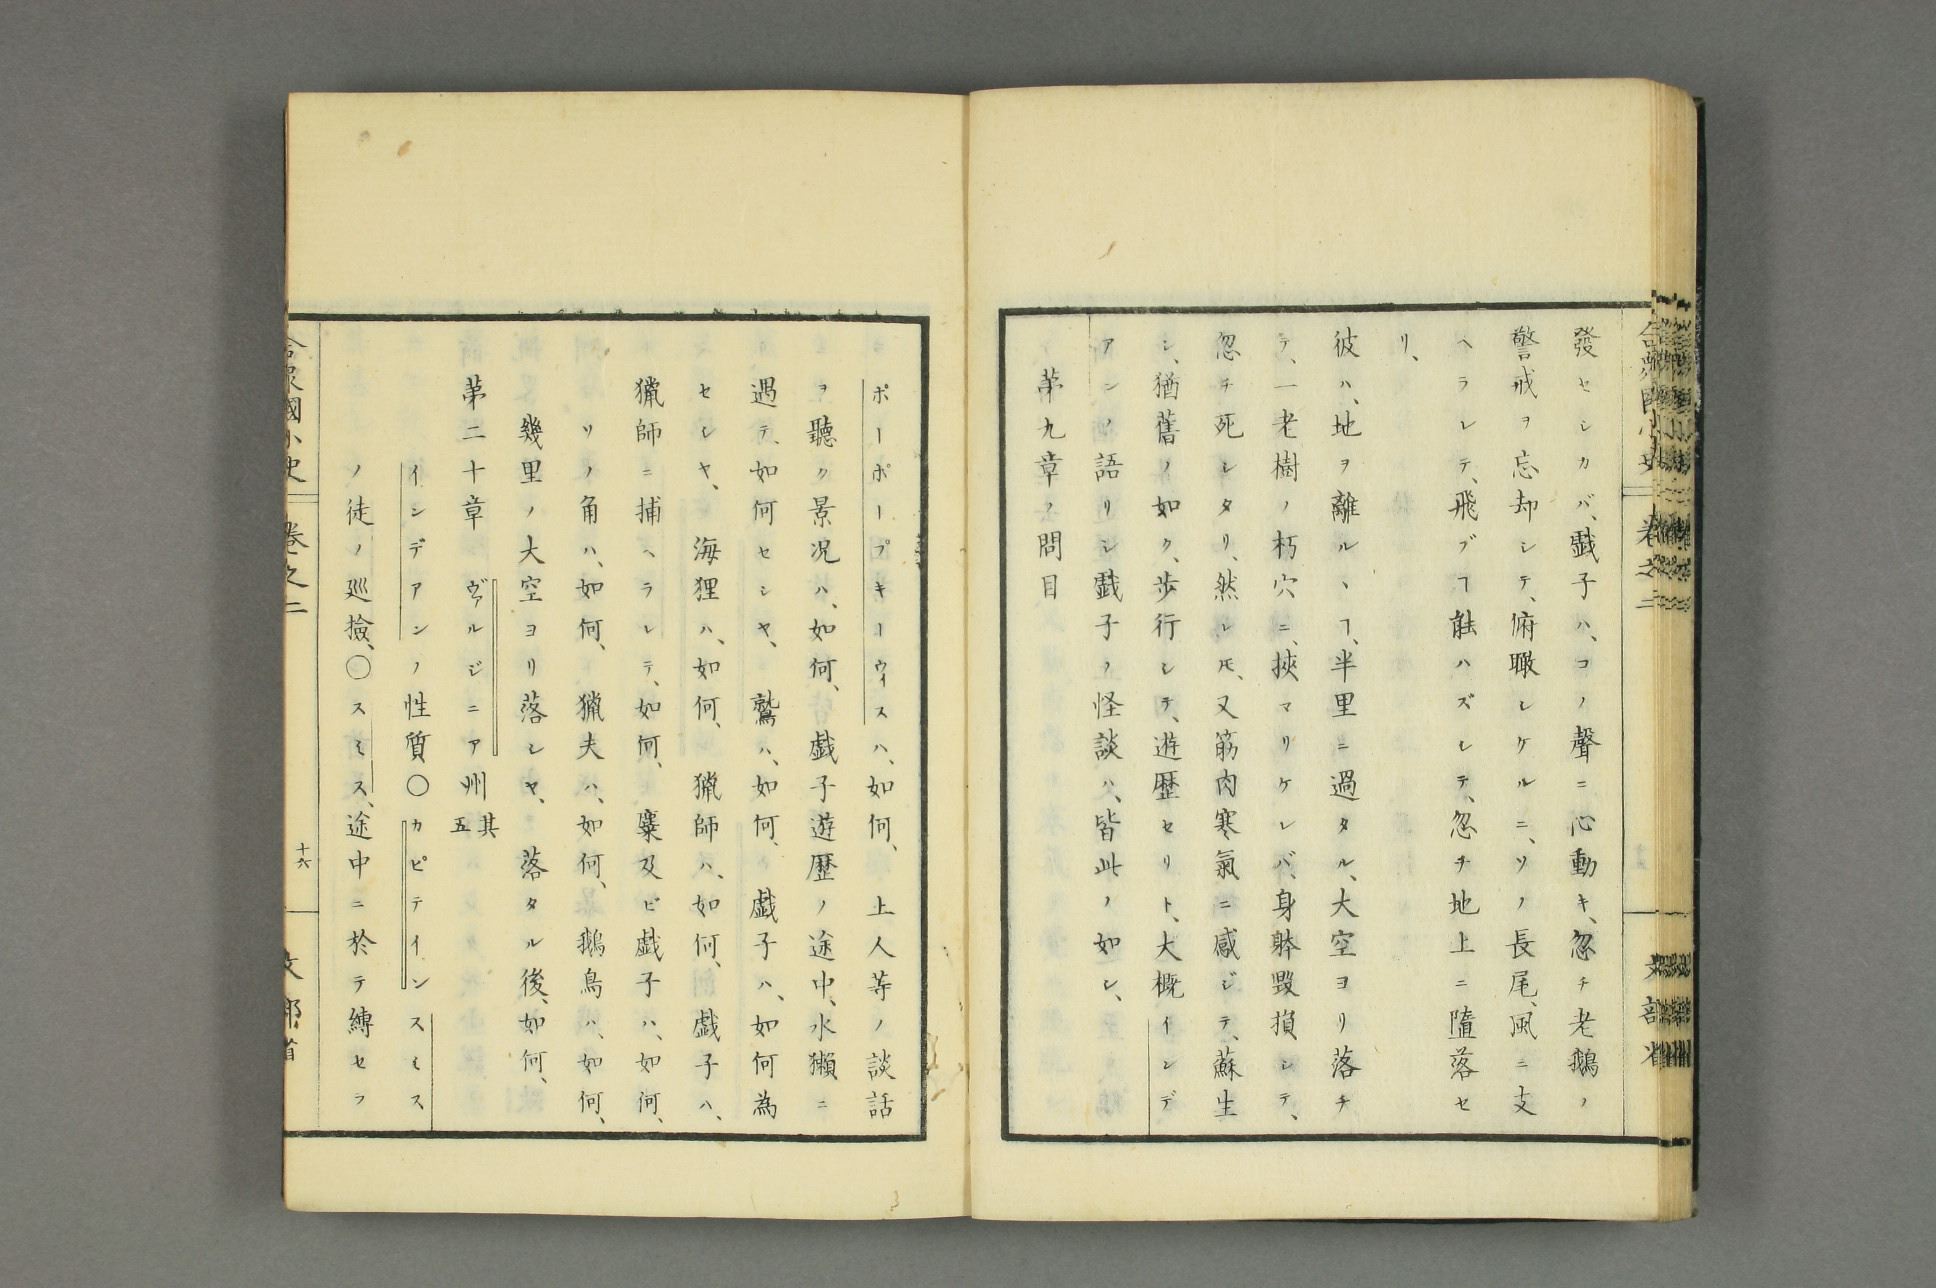 發セシカバ、戯子ハ、コノ聲ニ心動キ、忽チ老鵝ノ
警戒ヲ忘却シテ、俯瞰シケルニ、ソノ長尾、風ニ支
ヘラレテ、飛ブヿ能ハズシテ、忽チ地上ニ墮落セ
リ、
彼ハ、地ヲ離ルヽヿ、半里ニ過タル、大空ヨリ落チ
テ、一老樹ノ朽穴ニ、挾マリケレバ、身躰毀損シテ、
忽チ死シタリ、然レ𪜈、又筋肉寒氣ニ感ジテ、蘇生
シ、猶舊ノ如ク、歩行シテ、遊歴セリト、大概インデ
アンノ語リシ戯子ノ怪談ハ、皆此ノ如シ、
第九章ノ問目
合衆國小史 卷之二
文部省
ポーポープキーウィスハ、如何、上人等ノ談話
ヲ聽ク景况ハ、如何、戯子遊歴ノ途中、水獺ニ
遇テ、如何セシヤ、鷲ハ、如何、戯子ハ、如何為
セシヤ、海狸ハ、如何、獵師ハ、如何、戯子ハ、
獵師ニ捕ヘラレテ、如何、麋及ビ戯子ハ、如何、
ソリノ角ハ、如何、獵夫ハ、如何、鵝鳥ハ、如何、
幾里ノ大空ヨリ落シヤ、落タル後、如何、
第二十章 ヴァルジニア州 其五
インデアンノ性質〇カピテインスミス
ノ徒ノ廵撿、〇スミス、途中ニ於テ縛セラ
合衆國小史 卷之二 十六 文部省